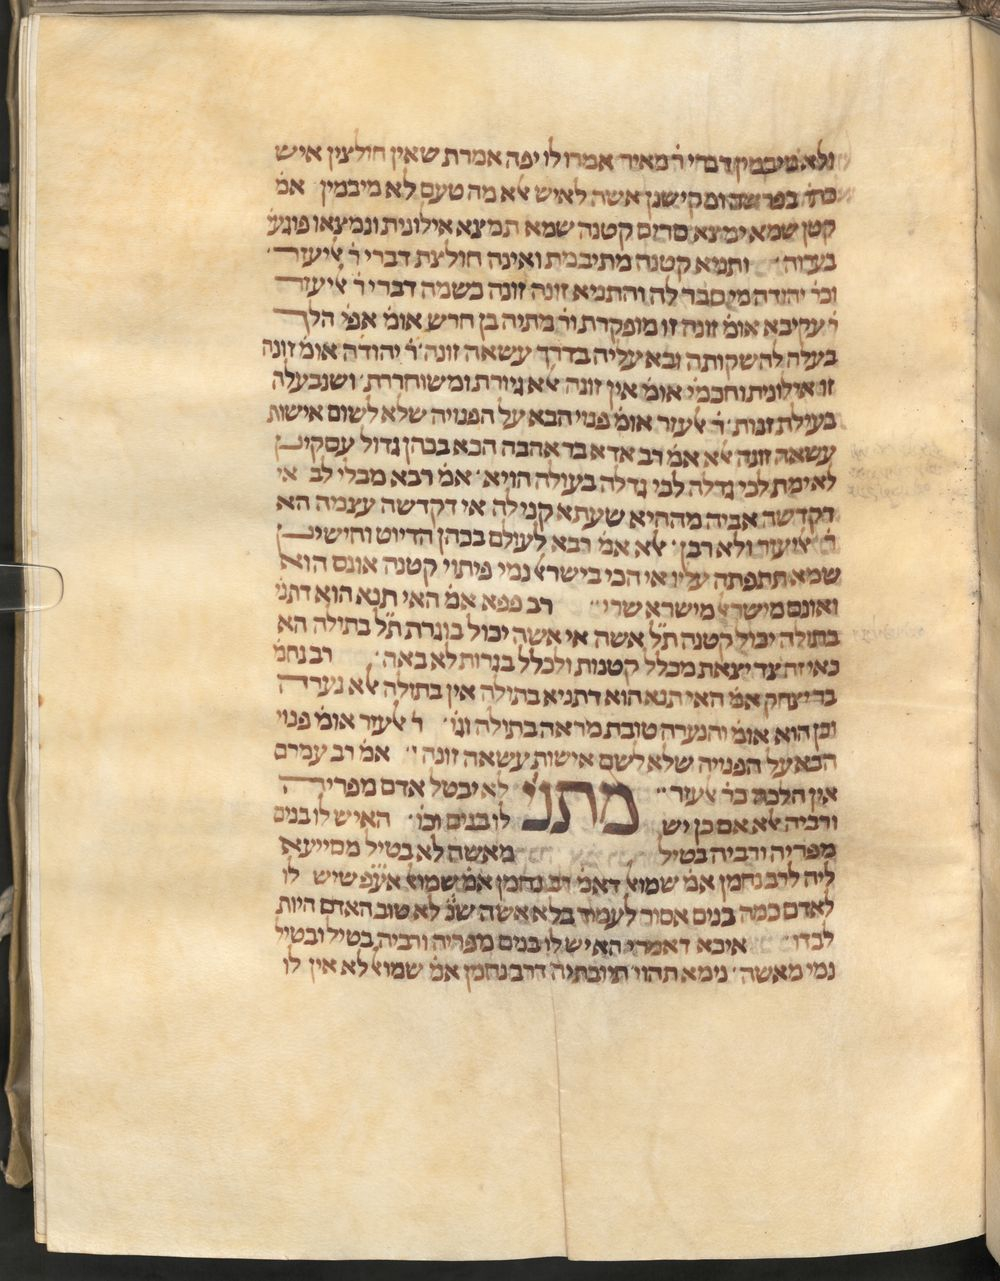 ולא מיבמין דברי ר׳ מאיר אמרו לו יפה אמרת שאין חולצין איש
כת׳ בפרשה ומקישנן אשה לאיש אלא מה טעם לא מיבמין אמ׳
קטן שמא ימצא סריס קטנה שמא תמצא אילונית ונמצאו פוגעי׳
בערוה׳ ותניא קטנה מתיבמת ואינה חולצת דברי ר׳ אליעזר׳
ור׳ יהודה מי סבר לה והתניא זונה זונה כשמה דברי ר׳ אליעזר
ר׳ עקיבא אומ׳ זונה זו מופקרת ור׳ מתיה בן חרש אומ׳ אפי׳ הלך
בעלה להשקותה ובא עליה בדרך עשאה זונה׳ ר׳ יהודה אומ׳ זונה
זו אילונית וחכמי׳ אומ׳ אין זונה אלא גיורת ומשוחררת׳ ושנבעלה
בעילת זנות׳ ר׳ אלעזר אומ׳ פנוי הבא על הפנויה שלא לשום אישות
עשאה זונה אלא אמ׳ רב אדא בר אהבה הכא בכהן גדול עסקינן
לאימת לכי גדלה לכי גדלה בעולה הויא׳ אמ׳ רבא מבלי לב אי
דקדשה אביה מההיא שעתא קני לה אי דקדשה עצמה הא
ר׳ אליעזר ולא רבנן׳ אלא אמ׳ רבא לעולם בכהן הדיוט וחיישינן
שמא תתפתה עליו אי הכי בישראל נמי פיתוי קטנה אונס הוא
ואונס מישראל מישרא שרי׳׳ רב פפא אמ׳ האי תנא הוא דתני׳
בתולה יכול קטנה ת״ל אשה אי אשה יכול בוגרת ת״ל בתולה הא
כאי זה צד יצאת מכלל קטנות ולכלל בגרות לא באה׳ רב נחמ׳
בר יצחק אמ׳ האי תנא הוא דתניא בתולה אין בתולה אלא נערה
וכן הוא אומ׳ והנערה טובת מראה בתולה וגו׳ ר׳ אלעזר אומ׳ פנוי
הבא על הפנויה שלא לשם אישות עשאה זונה׳׳ אמ׳ רב עמרם
אין הלכה כר׳ אלעזר׳׳ מתני׳ לא יבטל אדם מפריה
ורביה אלא אם כן יש לו בנים וכו׳ האיש לו בנים
מפריה ורביה בטיל מאשה לא בטיל מסייעא
ליה לרב נחמן אמ׳ שמואל דאמ׳ רב נחמן אמ׳ שמואל אע״פ שיש לו
לאדם כמה בנים אסור לעמוד בלא אשה שנ׳ לא טוב האדם היות
לבדו׳ איכא דאמרי האיש לו בנים מפריה ורביה בטיל ובטיל
נמי מאשה׳ נימא תהוי תיובתיה דרב נחמן אמ׳ שמואל לא אין לו